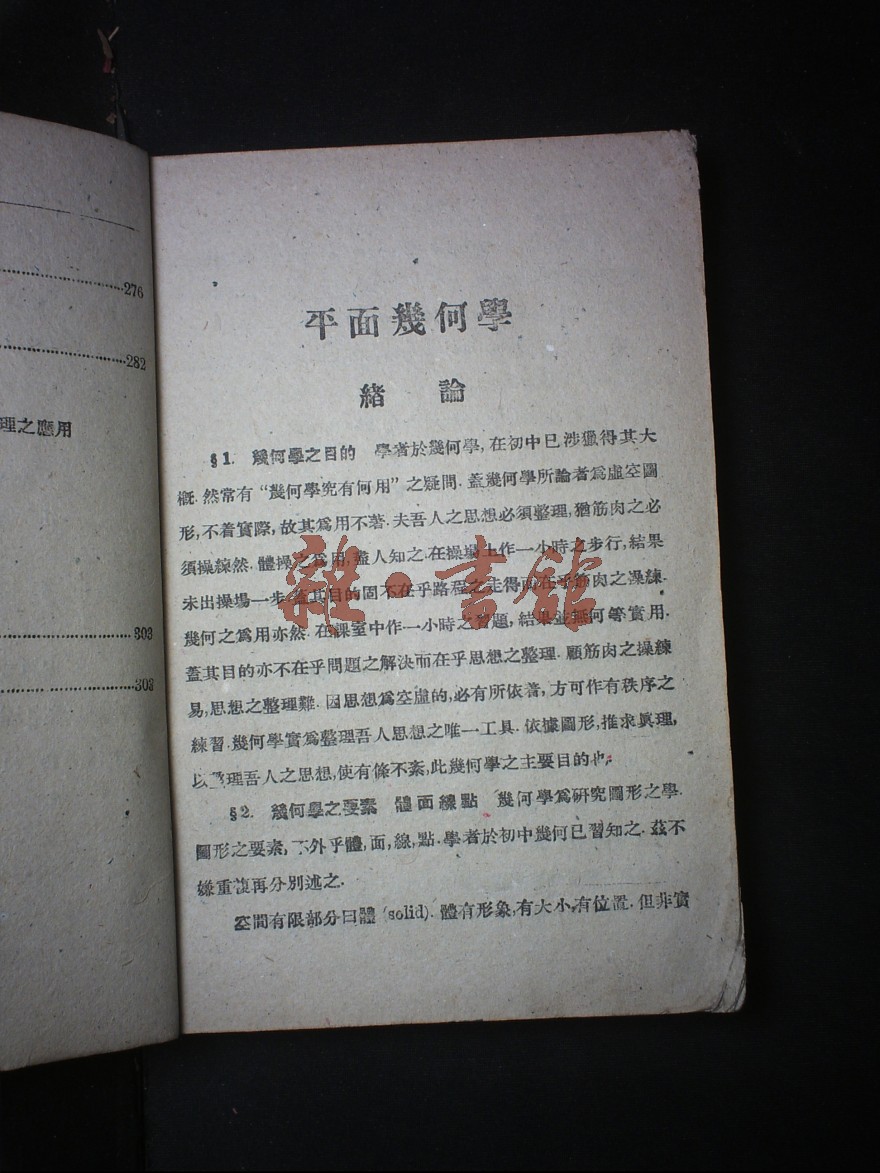 276
282
理之應用
303
303
平面幾何學
緒論
§1. 幾何學之目的 學者於幾何學,在初中已涉獵得其大
概.然常有“幾何學究有何用”之疑問.蓋幾何學所論者爲虛空圖
形,不着實際,故其爲用不著.夫吾人之思想必須整理,猶筋肉之必
須操練然.體操之爲用,盡人知之.在操場上作一小時之步行,結果
未出操場一步.蓋其目的固不在乎路程之走得而在乎筋肉之操練.
幾何之爲用亦然.在課室中作一小時之習題,結果並無何等實用.
蓋其目的亦不在乎問題之解決而在乎思想之整理.顧筋肉之操練
易,思想之整理難.因思想爲空虛的,必有所依着,方可作有秩序之
練習.幾何學實爲整理吾人思想之唯一工具.依據圖形,推求眞理,
以整理吾人之思想,使有條不紊,此幾何學之主要目的也.
§2. 幾何學之要素 體面線點 幾何學爲硏究圖形之學.
圖形之要素,不外乎體,面,線,點.學者於初中幾何已習知之.茲不
嫌重複再分別述之.
空間有限部分曰體(solid).體有形象,有大小,有位置.但非實
雜·書館